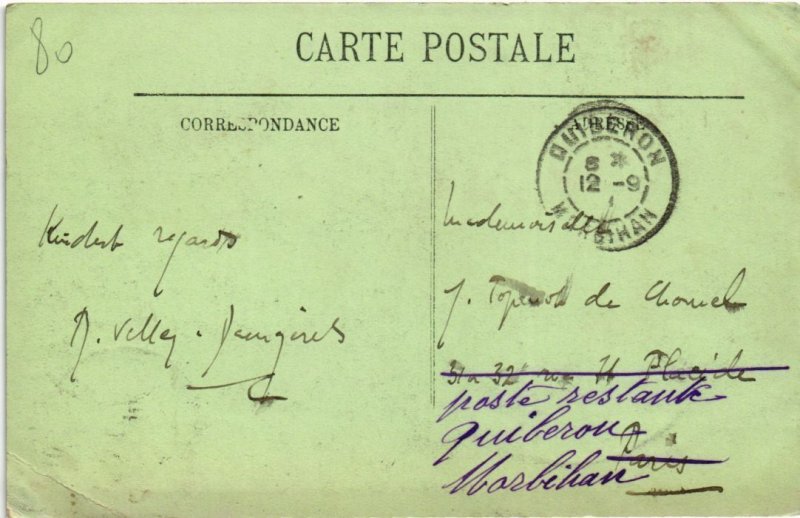 80
CARTE POSTALE
CORRESPONDANCE
ADRESSE
QUIBERON
8 *
12 - 9
MORBIHAN
Kindest regards
Mademoiselle
J. de
32 rue St Placide
poste restante
Quiberon
Paris
Morbihan